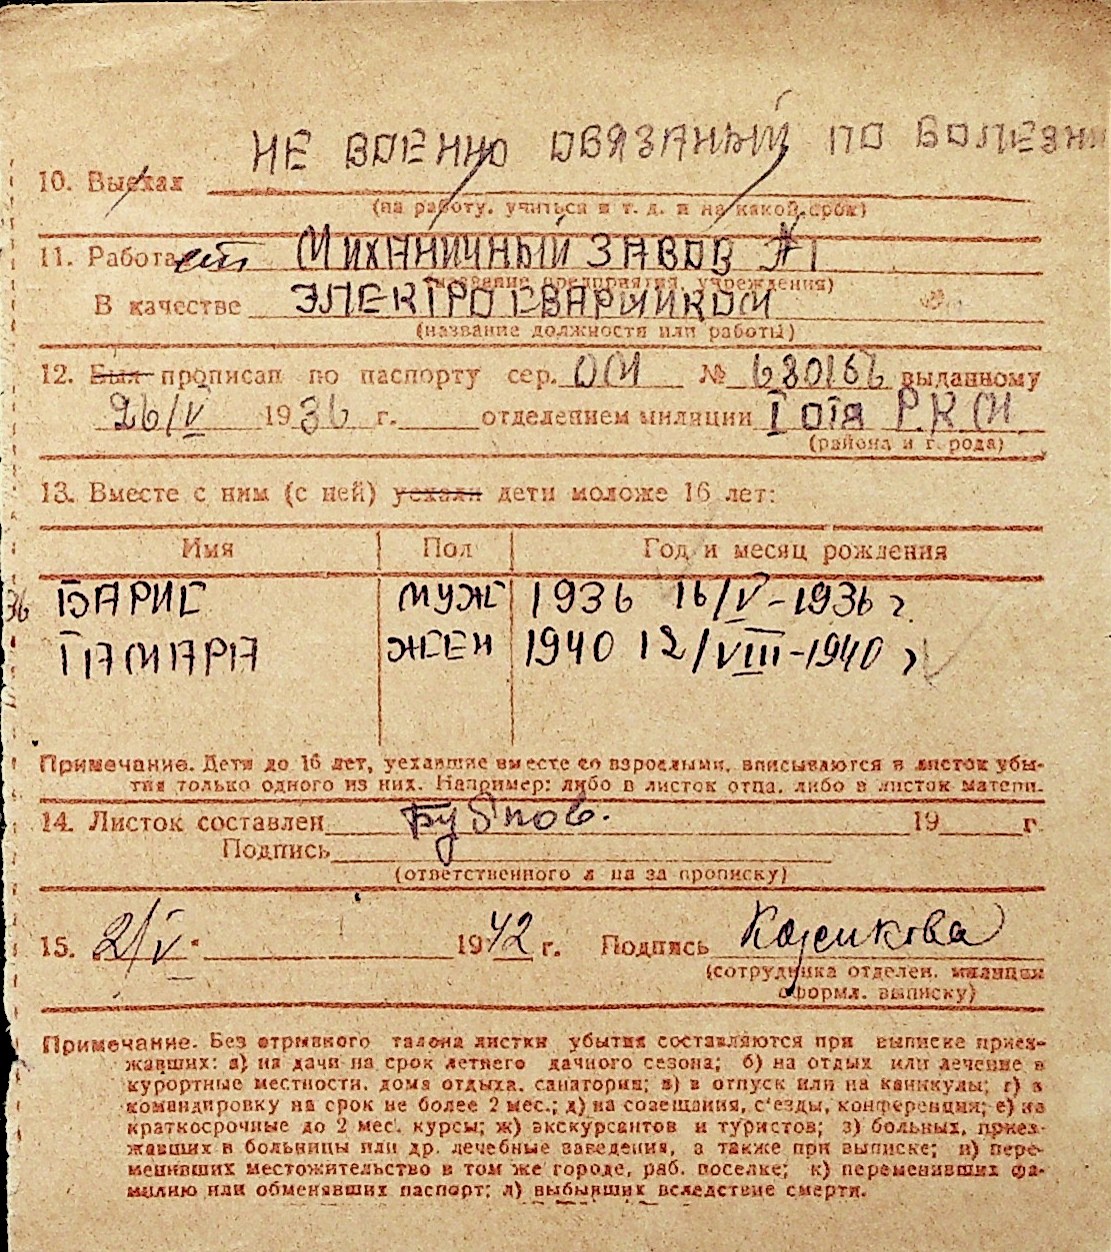 НЕ ВОЕННО ОБЯЗАННЫЙ ПО БОЛЕЗНИ
10. Выехал
(на работу, учиться и т. д. и на какой срок)
11. Работает МИХАНИЧНЫЙ ЗАВОВ №1
(название предприятия, учреждения)
В качестве ЭЛЕКТРОСВАРЩИКОМ
(название должности или работы)
12. Был прописан по паспорту сер. ОМ № 680166 выданному
26/V 1936 г. отделением милиции I ОТЯ Р.К М
(района и города)
13. Вместе с ним (с ней) уехали дети моложе 16 лет:
Имя Пол Год и месяц рождения
36 БАРИС МУЖ 1936 16/V-1936 г.
ТАМАРА ЖЕН 1940 12/VIII-1940 г
Примечание. Дети до 16 лет, уехавшие вместе со взрослыми, вписываются в листок убы-
тия только одного из них. Например: либо в листок отца, либо в листок матери.
14. Листок составлен 19 г.
Подпись
(ответственного л ца за прописку)
15. 2/V. 1942 г. Подпись
(сотрудника отделен. милиции
оформл. выписку)
Примечание. Без отрывного талона листки убытия составляются при выписке приез-
жавших: а) на дачи на срок летнего дачного сезона; б) на отдых или лечение в
курортные местности, дома отдыха, санатории; в) в отпуск или на каникулы; г) в
командировку на срок не более 2 мес.; д) на совещания, с'езды, конференции; е) на
краткосрочные до 2 мес. курсы; ж) экскурсантов и туристов; з) больных, приез-
жавших в больницы или др. лечебные заведения, а также при выписке; и) пере-
менивших местожительство в том же городе, раб. поселке; к) переменивших фа-
милию или обменявших паспорт; л) выбывших вследствие смерти.